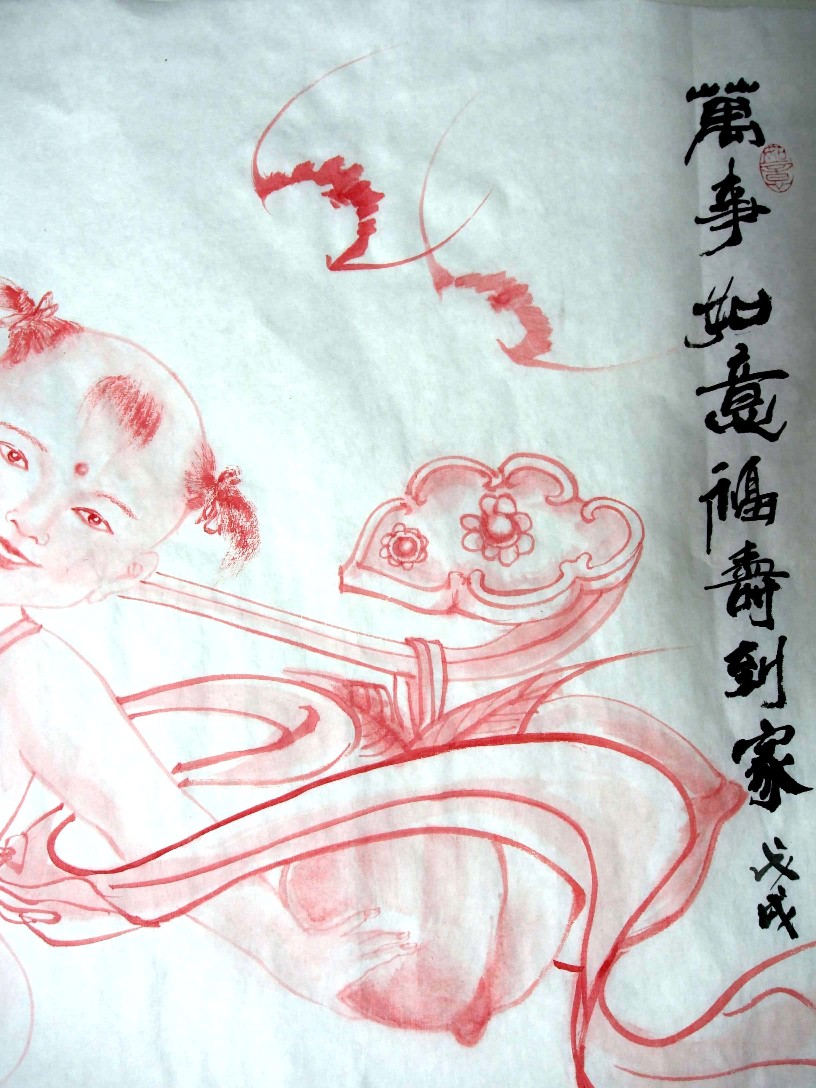 萬事如意福壽到家
戊戌
如意